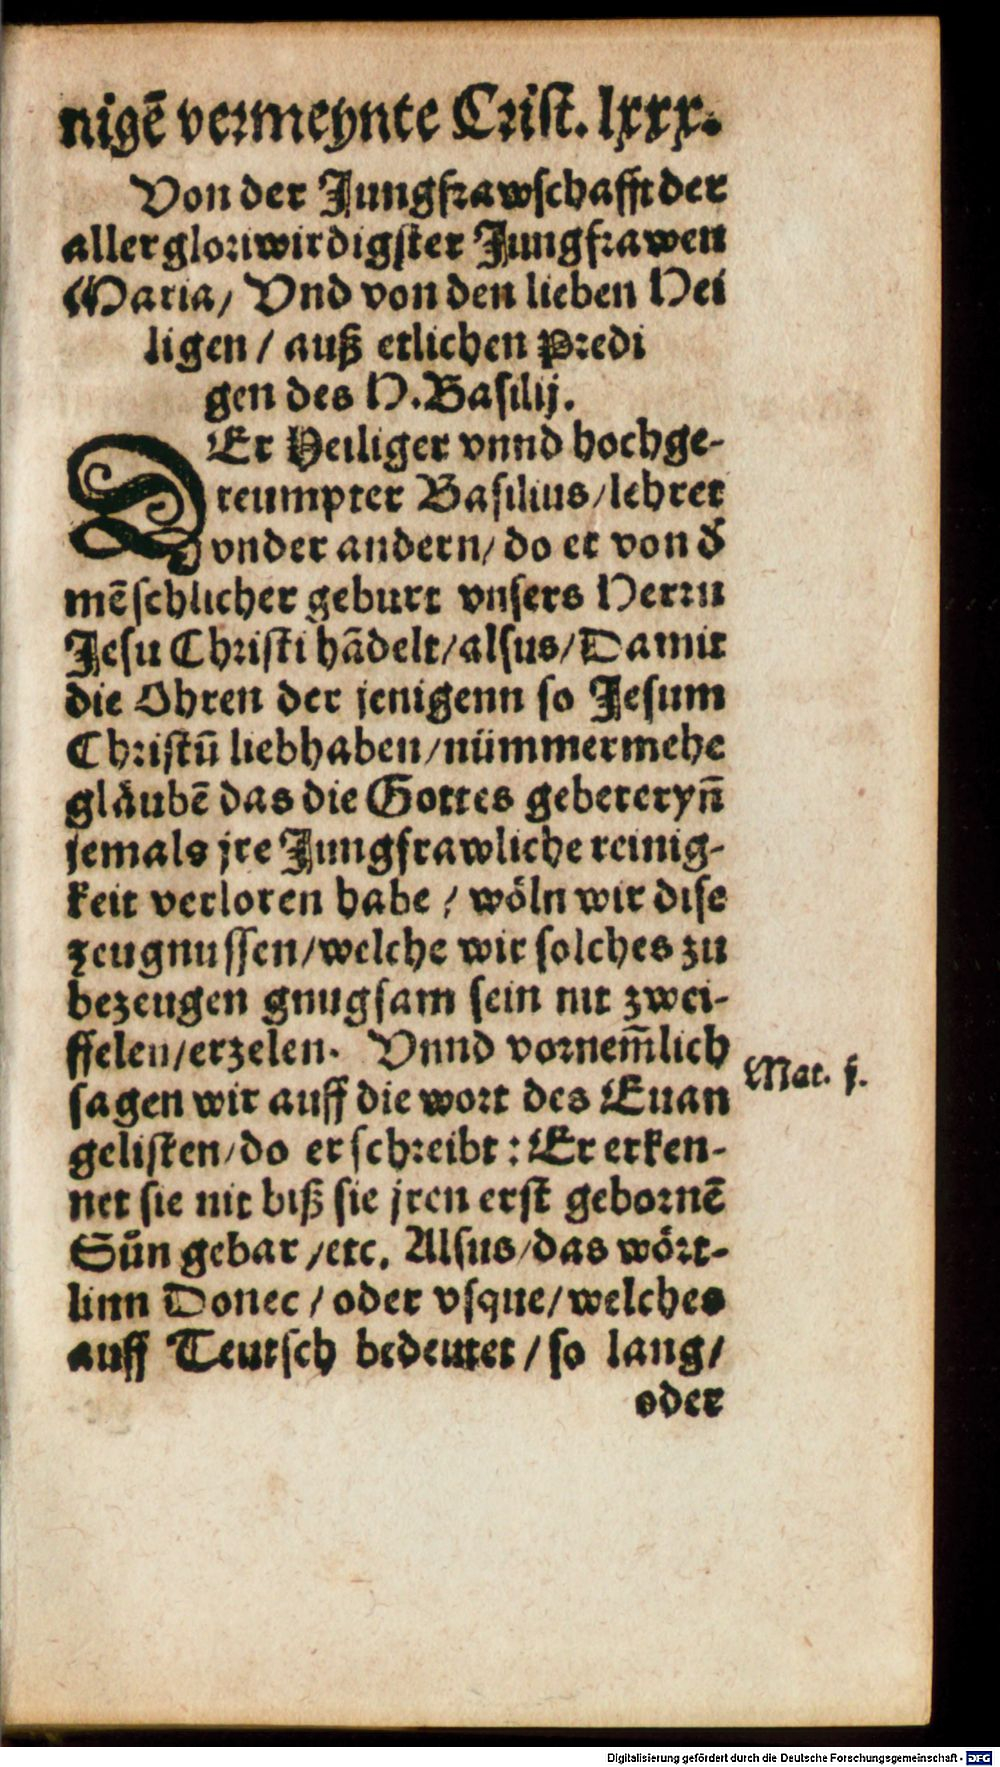 nigē vermeynte Crist. lxxx.
Von der Jungfrawschafft der
aller gloriwirdigster Jungfrawen
Maria/ Vnd von den lieben Hei
ligen / auß etlichen Predi
gen des H. Basilij.
DEr Heiliger vnnd hochge-
reumpter Basilius/lehret
vnder andern/ do er von d̄
mēschlicher geburt vnsers Herrn
Jesu Christi hādelt/alsus/Damit
die Ohren der jenigenn so Jesum
Christū liebhaben/nümmermehe
gläubē das die Gottes gebererynn̄
jemals jre Jungfrawliche reinig-
keit verloren habe / wöln wir dise
zeugnussen/welche wir solches zu
bezeugen gnugsam sein nit zwei-
ffelen/erzelen. Vnnd vornem̄lich
sagen wir auff die wort des Euan
gelisten/do er schreibt : Er erken-
net sie nit biß sie jren erst gebornē
Sün gebar /etc. Alsus/das wört-
linn Donec / oder vsque/welches
auff Teutsch bedeutet / so lang/
oder
Mat. j.
Digitalisierung gefördert durch die Deutsche Forschungsgemeinschaft - DFG